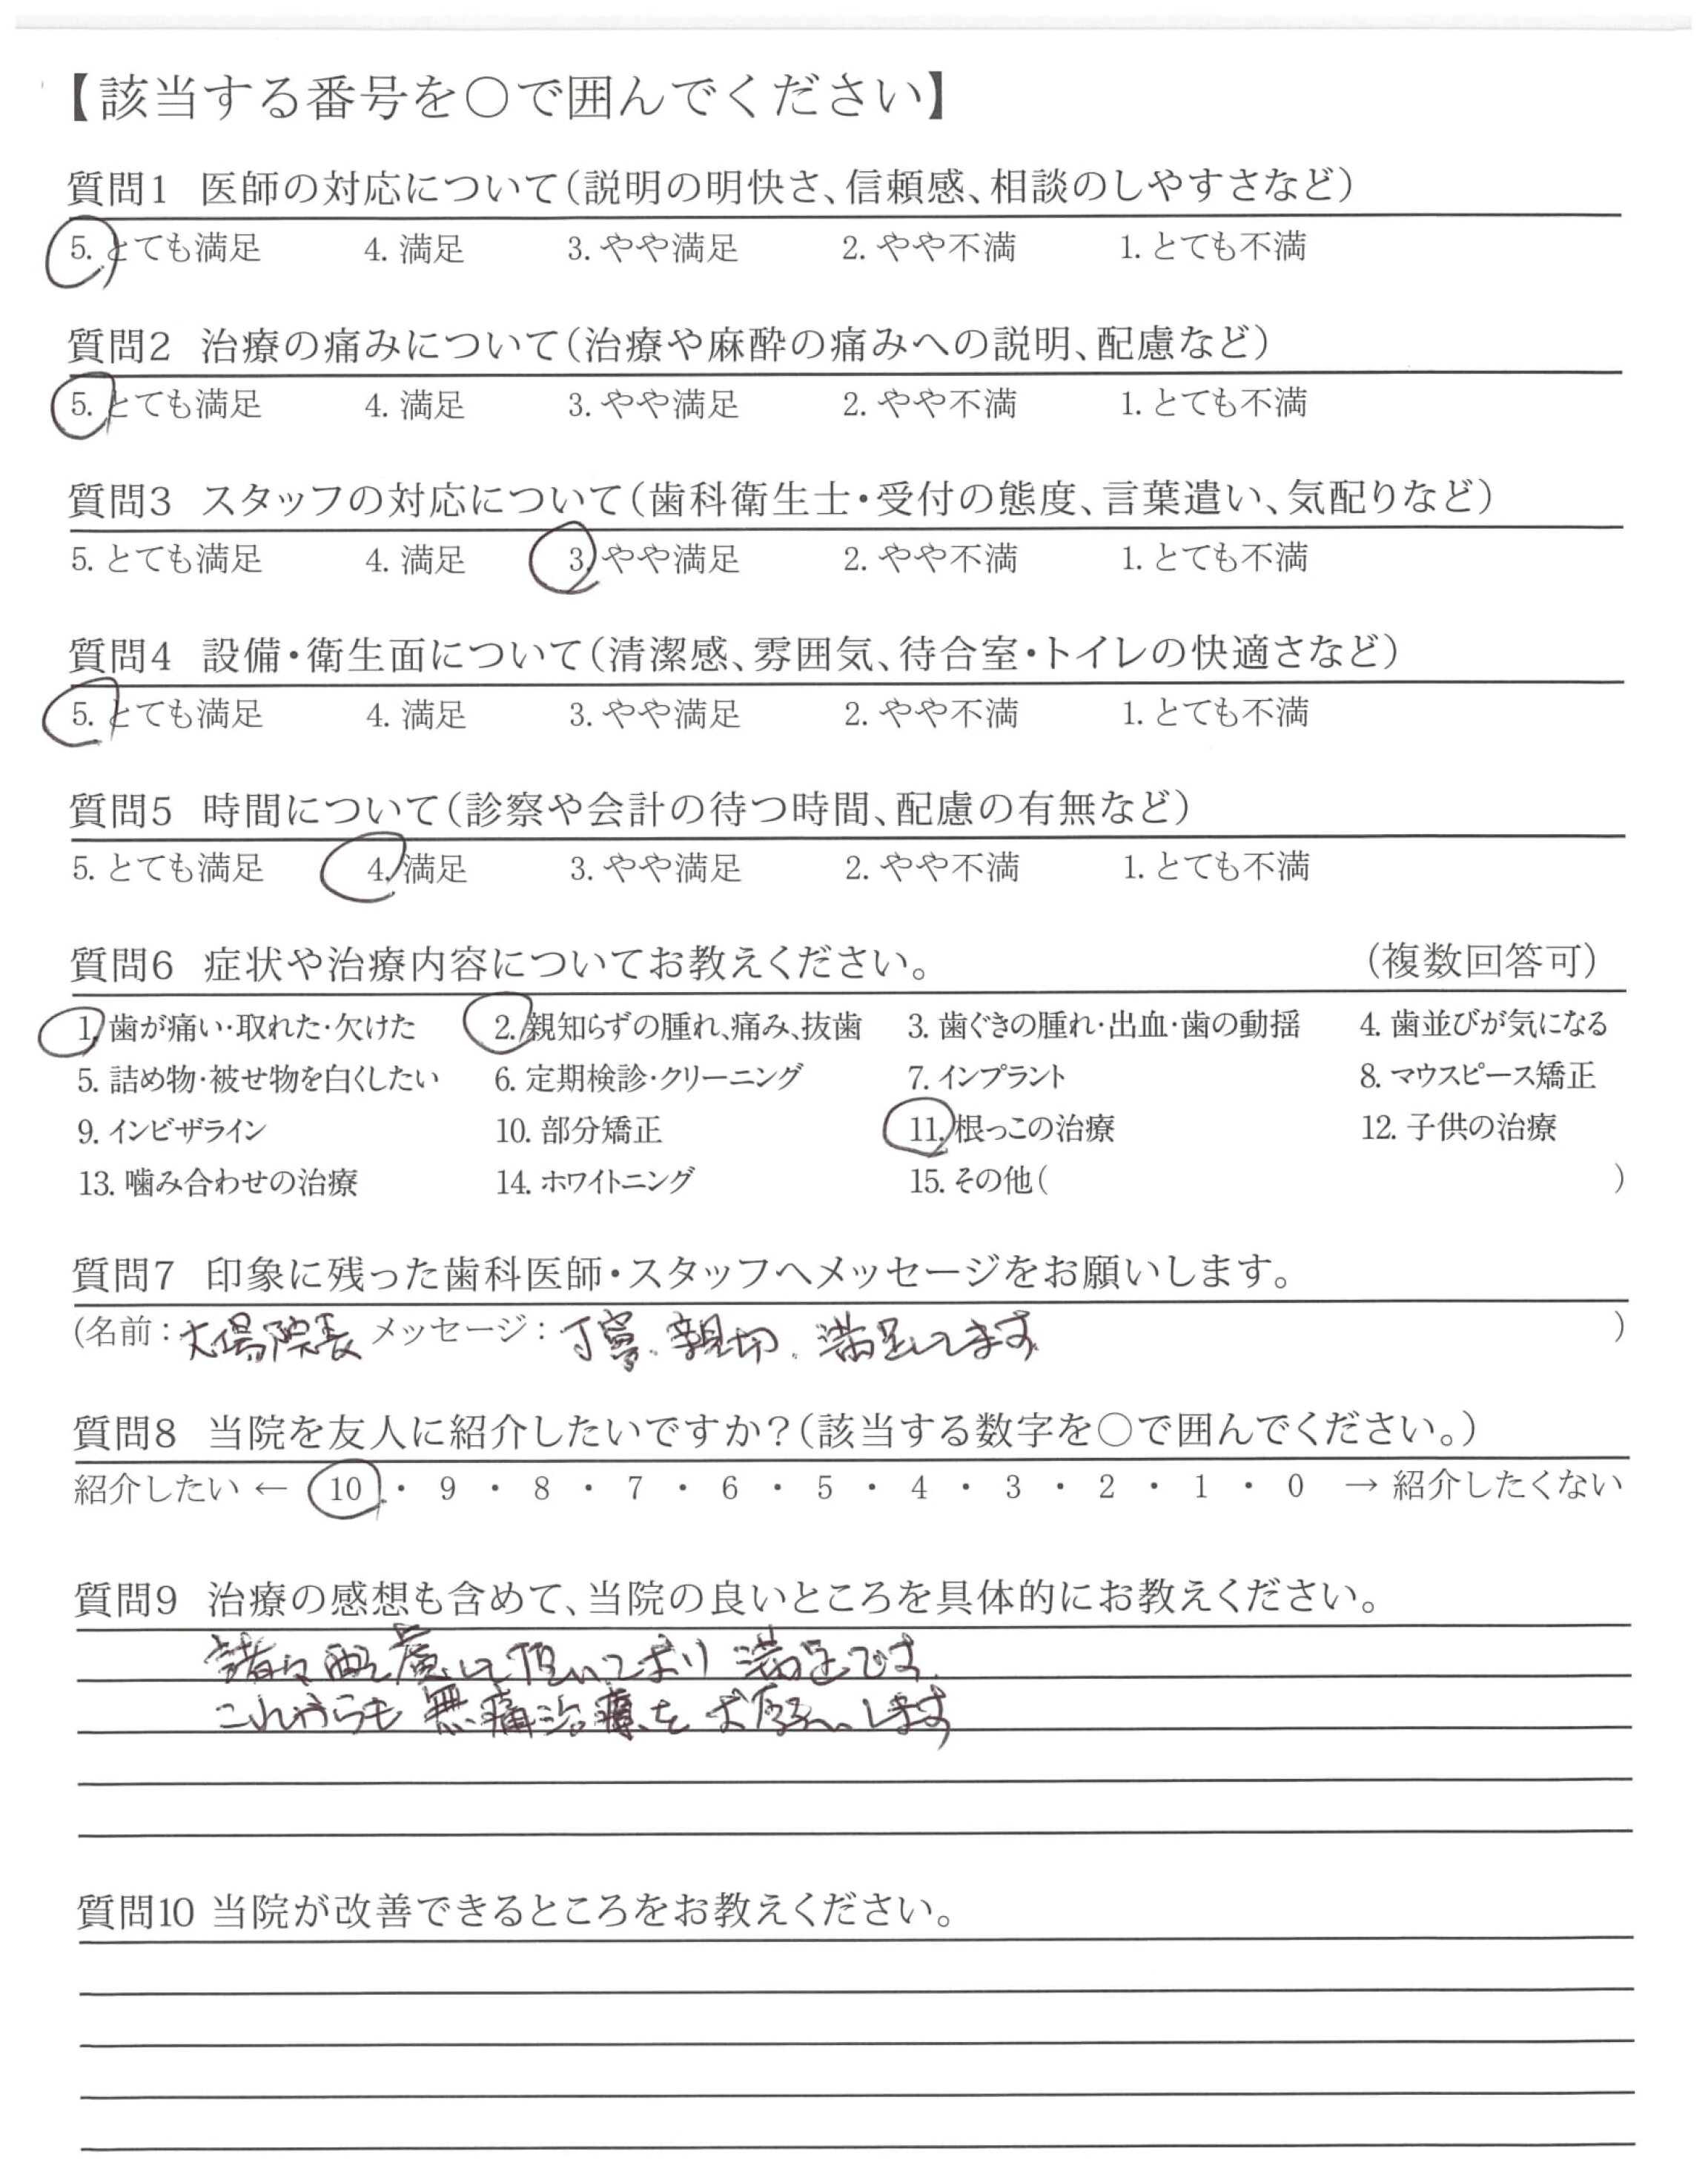 【該当する番号を○で囲んでください】
質問1 医師の対応について(説明の明快さ、信頼感、相談のしやすさなど)
5. とても満足 4. 満足 3. やや満足 2. やや不満 1. とても不満
質問2 治療の痛みについて(治療や麻酔の痛みへの説明、配慮など)
5. とても満足 4. 満足 3. やや満足 2. やや不満 1. とても不満
質問3 スタッフの対応について(歯科衛生士・受付の態度、言葉遣い、気配りなど)
5. とても満足 4. 満足 3. やや満足 2. やや不満 1. とても不満
質問4 設備・衛生面について(清潔感、雰囲気、待合室・トイレの快適さなど)
5. とても満足 4. 満足 3. やや満足 2. やや不満 1. とても不満
質問5 時間について(診察や会計の待つ時間、配慮の有無など)
5. とても満足 4. 満足 3. やや満足 2. やや不満 1. とても不満
質問6 症状や治療内容についてお教えください。 (複数回答可)
1. 歯が痛い・取れた・欠けた 2. 親知らずの腫れ、痛み、抜歯 3. 歯ぐきの腫れ・出血・歯の動揺 4. 歯並びが気になる
5. 詰め物・被せ物を白くしたい 6. 定期検診・クリーニング 7. インプラント 8. マウスピース矯正
9. インビザライン 10. 部分矯正 11. 根っこの治療 12. 子供の治療
13. 噛み合わせの治療 14. ホワイトニング 15. その他( )
質問7 印象に残った歯科医師・スタッフへメッセージをお願いします。
(名前: 大場院長 メッセージ: 丁寧、親切、満足してます )
質問8 当院を友人に紹介したいですか?(該当する数字を○で囲んでください。)
紹介したい ← 10 ・ 9 ・ 8 ・ 7 ・ 6 ・ 5 ・ 4 ・ 3 ・ 2 ・ 1 ・ 0 → 紹介したくない
質問9 治療の感想も含めて、当院の良いところを具体的にお教えください。
諸々配慮して頂いており満足です
これからも無痛治療をお願いします
質問10 当院が改善できるところをお教えください。